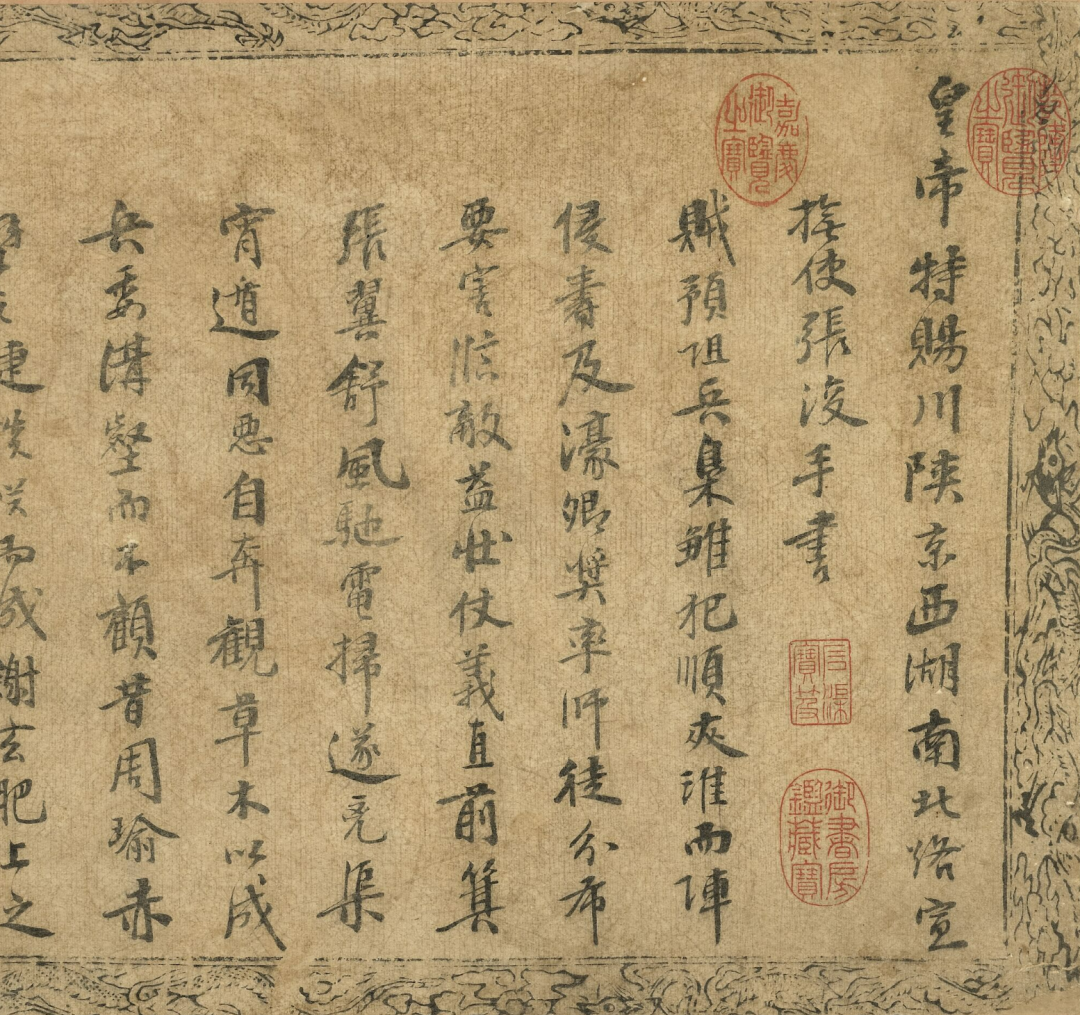 皇帝特賜川陝京西湖南北路宣
撫使張浚手書
賊預阻兵梟雛犯順夾淮而陣
侵壽及濠卿奬率師徒分布
要害臨敵益壯仗義直前箕
張翼舒風馳電掃遂兇渠
宵遁同惡自奔觀草木以成
兵委溝壑而不顧昔周瑜赤
捷談笑而成謝玄肥上之
嘉慶御覽之寶
石渠寶笈
御書房鑑藏寶